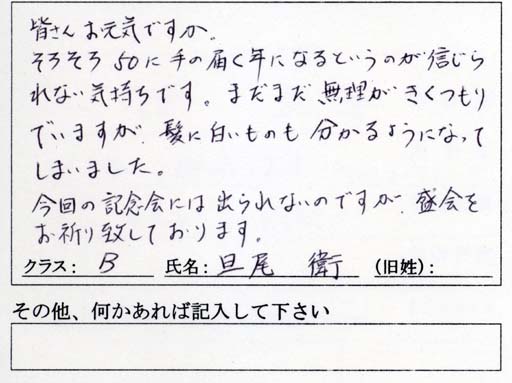 皆さんお元気ですか。
そろそろ50に手の届く年になるというのが信じら
れない気持ちです。まだまだ無理がきくつもり
でいますが、髪に白いものも分かるようになって
しまいました。
今回の記念会には出られないのですが、盛会を
お祈り致しております。
クラス: B 氏名: 旦尾 衛 (旧姓):
その他、何かあれば記入して下さい